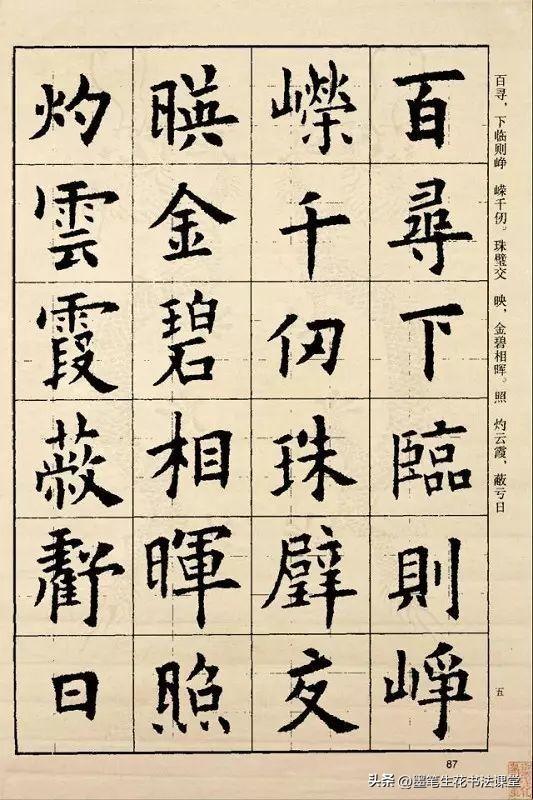 百尋下臨則崢
嶸千仞珠璧交
暎金碧相暉照
灼雲霞蔽虧日
百寻，下临则峥 嵘千仞。珠璧交 映，金碧相晖。照 灼云霞，蔽亏日
五
87
头条@墨笔生花书法课堂